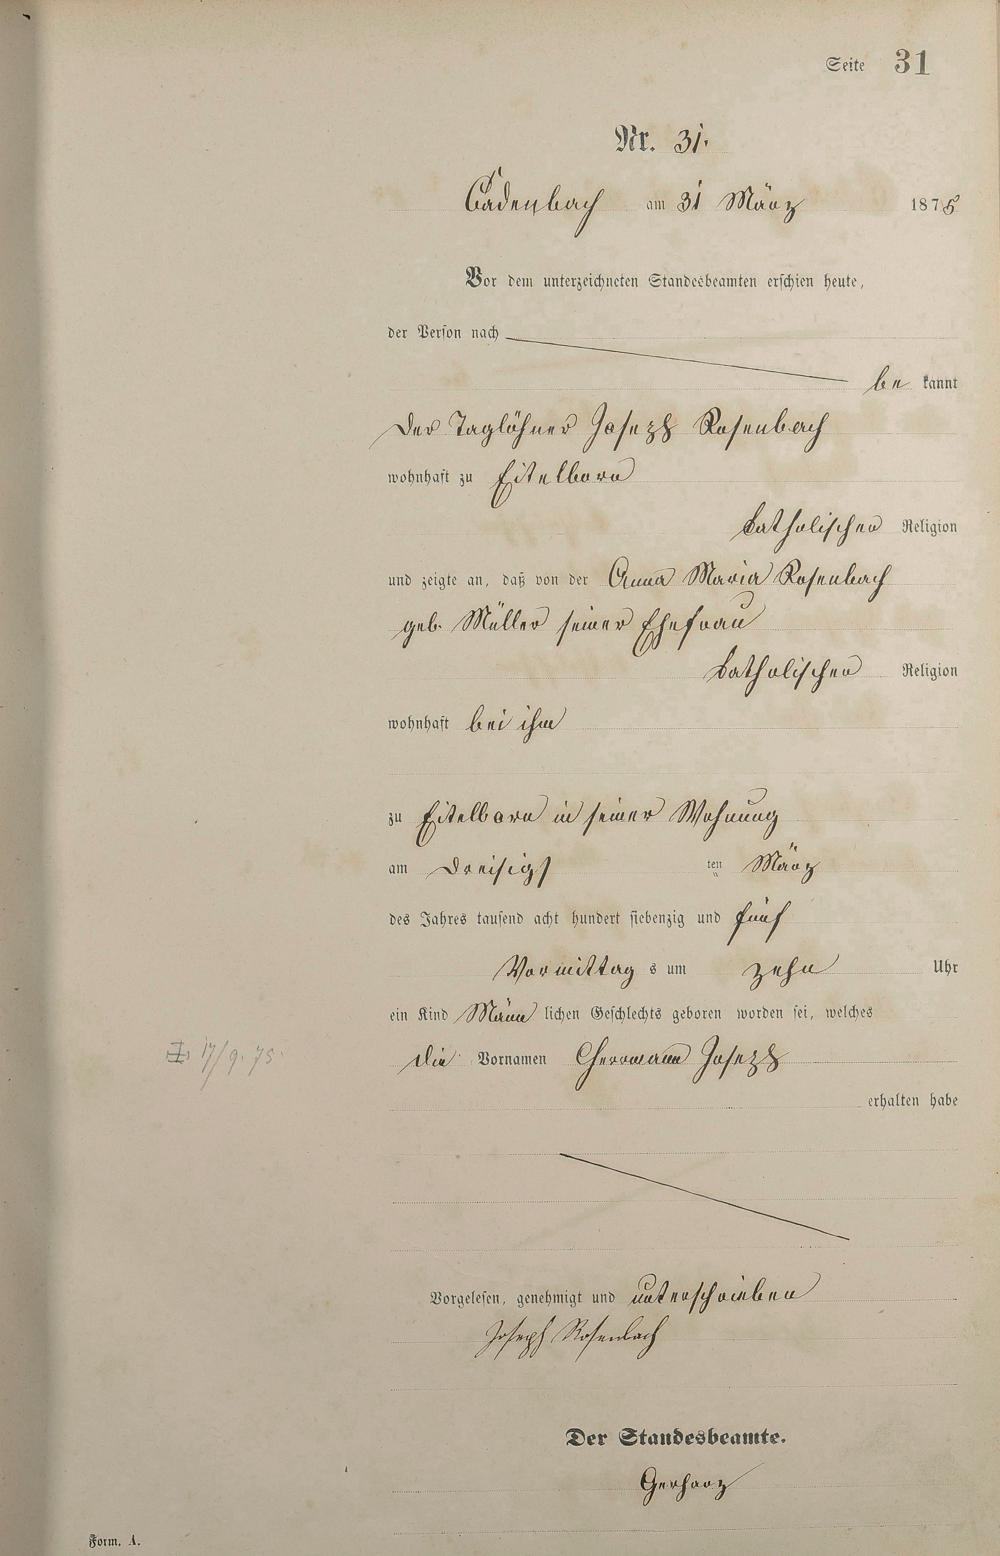 Seite 31
Nr. 31.
Cadenbach am 31 März 1875
Vor dem unterzeichneten Standesbeamten erschien heute,
der Person nach
be kannt
der Taglöhner Joseph Rosenbach
wohnhaft zu Eitelborn
katholischer Religion
und zeigte an, daß von der Anna Maria Rosenbach
geb. Müller seiner Ehefrau
katholischer Religion
wohnhaft bei ihm
zu Eitelborn in seiner Wohnung
am dreisigs ten März
des Jahres tausend acht hundert siebenzig und fünf
Vormittag s um zehn Uhr
ein Kind Männ lichen Geschlechts geboren worden sei, welches
die Vornamen Joseph
17/9. 75.
erhalten habe
Vorgelesen, genehmigt und unterschrieben
Joseph Rosenbach
Der Standesbeamte.
Gerharz
Form. A.